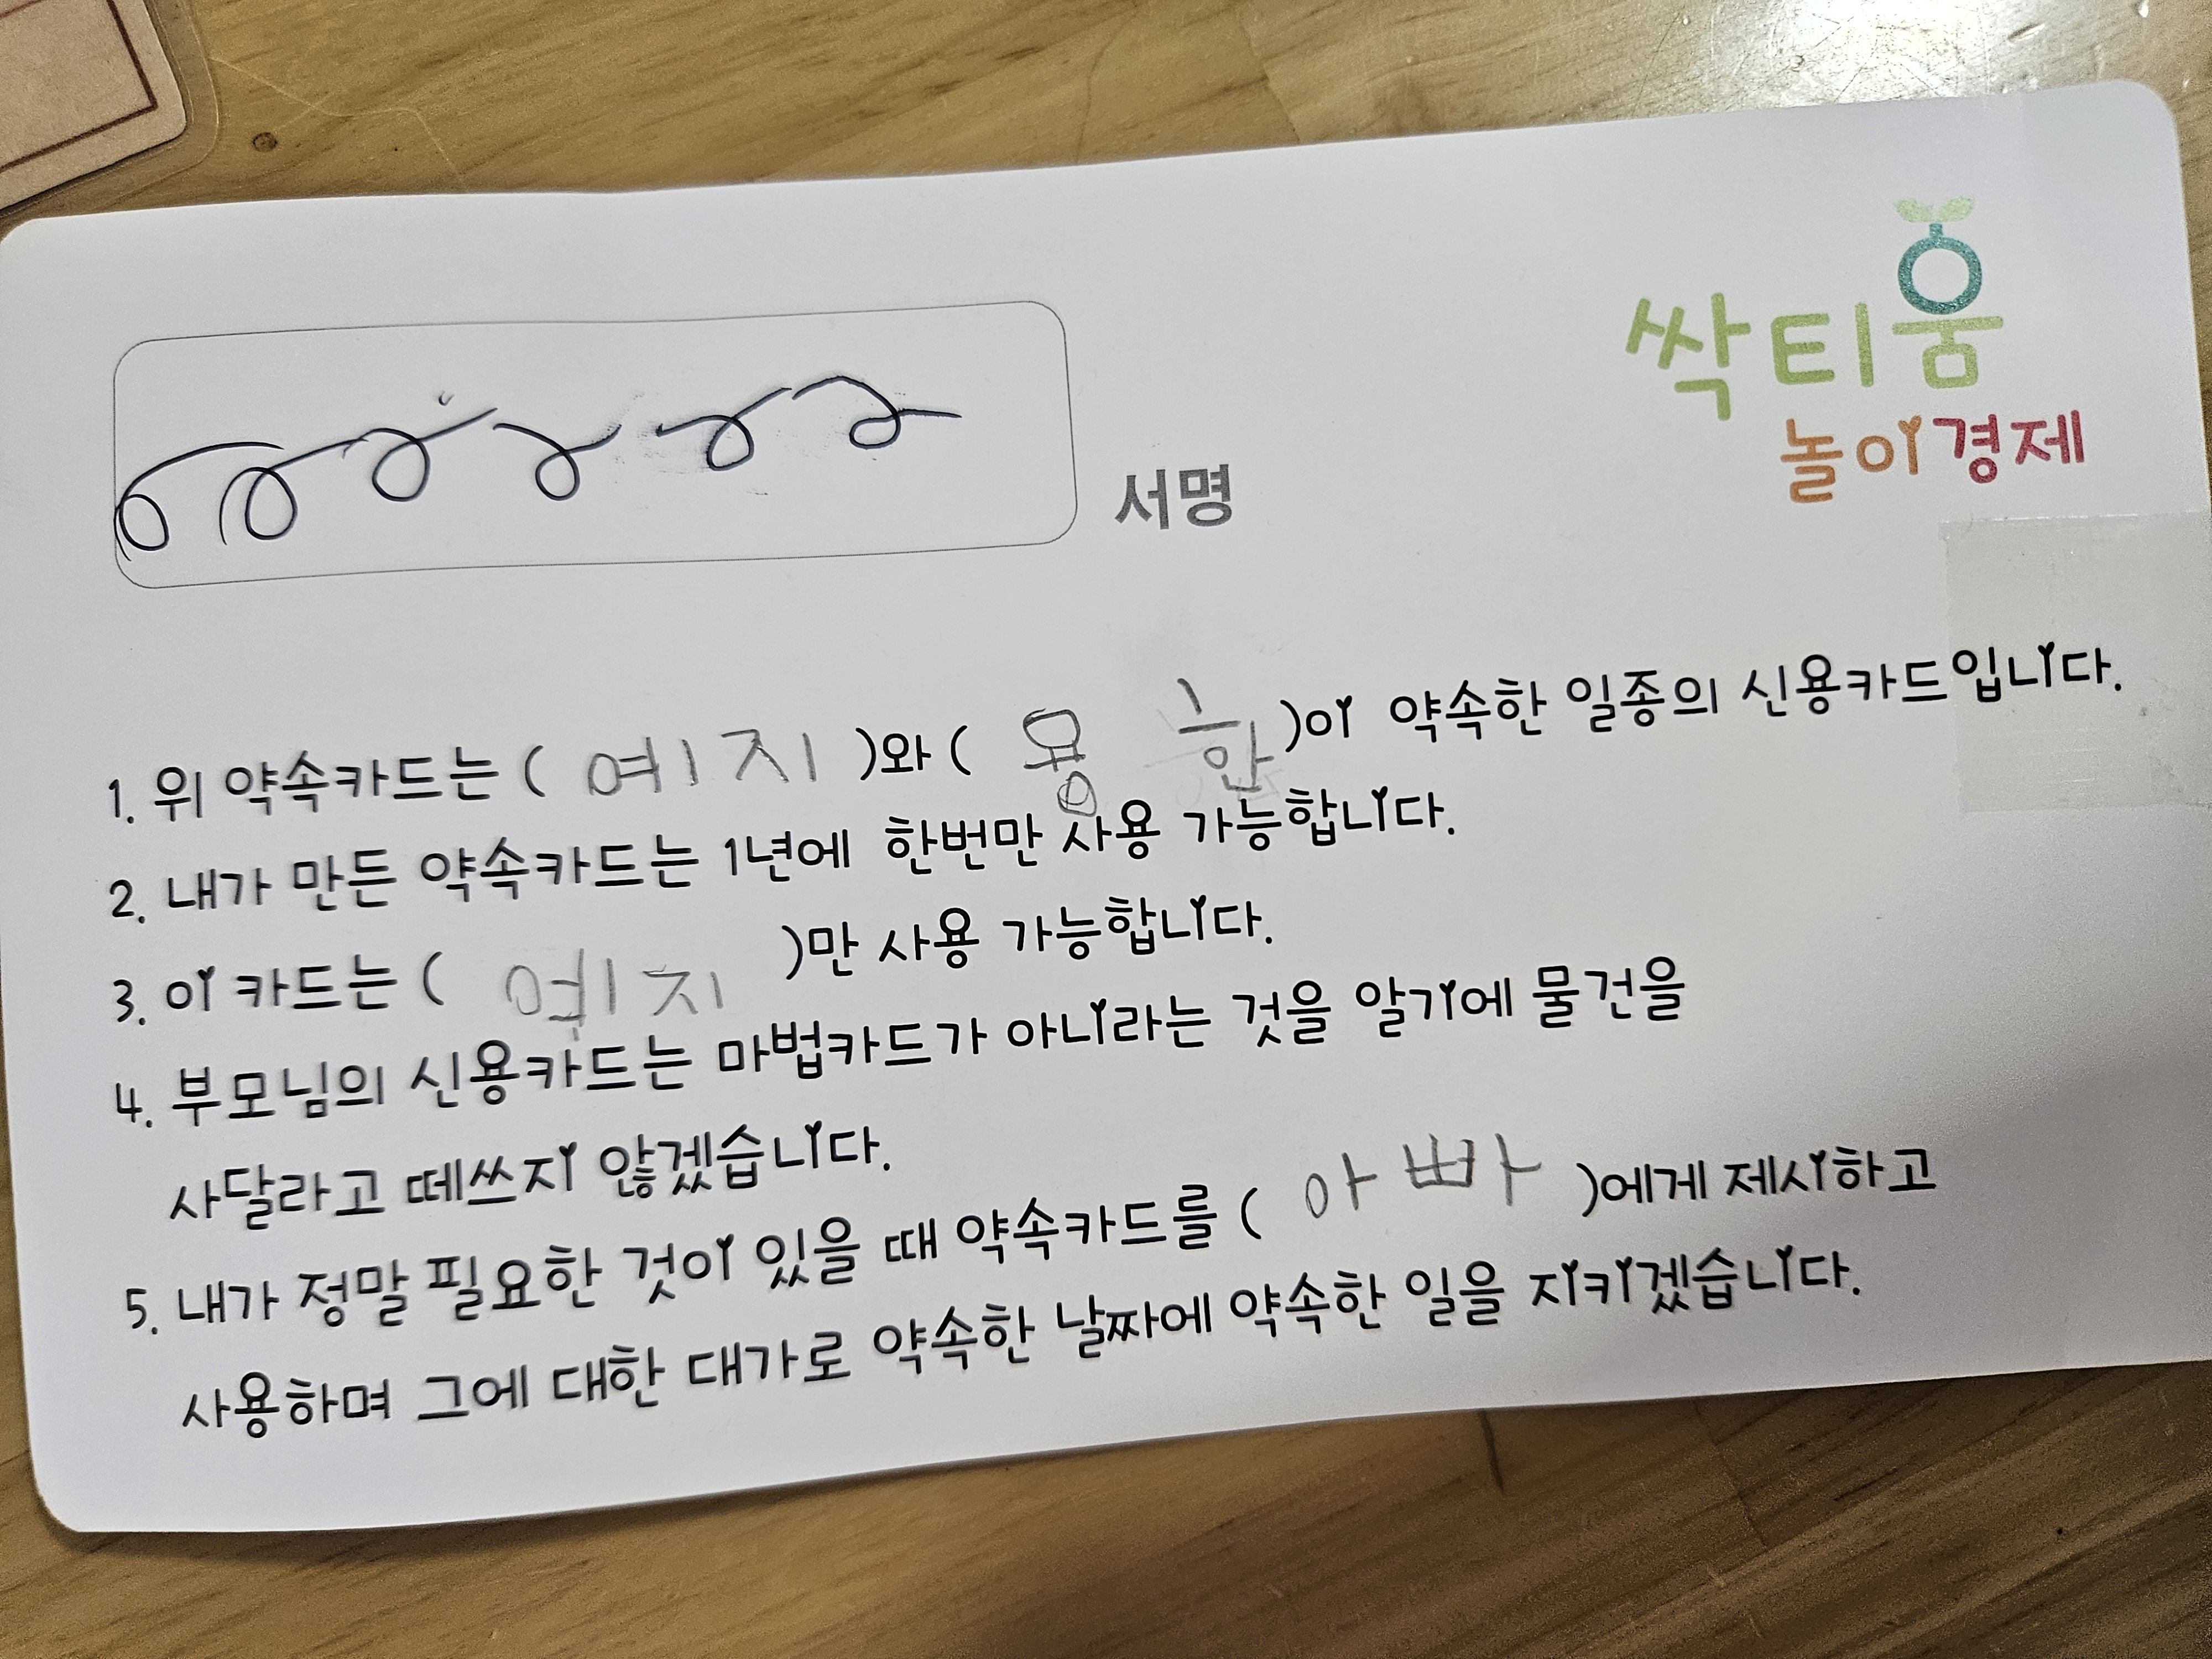 싹티움
놀이경제
서명
1. 위 약속카드는 ( 예지 )와 ( 용환 )이 약속한 일종의 신용카드입니다.
2. 내가 만든 약속카드는 1년에 한번만 사용 가능합니다.
3. 이 카드는 ( 예지 )만 사용 가능합니다.
4. 부모님의 신용카드는 마법카드가 아니라는 것을 알기에 물건을
사달라고 떼쓰지 않겠습니다.
5. 내가 정말 필요한 것이 있을 때 약속카드를 ( 아빠 )에게 제시하고
사용하며 그에 대한 대가로 약속한 날짜에 약속한 일을 지키겠습니다.